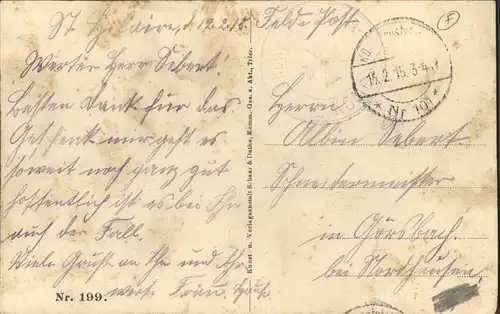 St Hilaire, d 12.2.15. Feld-Post.
Werter Herr Sebert!
Besten Dank für das
Geschenk mir geht es
soweit noch ganz gut
hoffentlich ist es bei Ihn
auch der Fall.
Viele Grüße an Ihn und Ihr
werte Frau
Nr. 199.
Kunst- u. Verlagsanstalt Schaar & Dathe, Komm.-Ges. a. Akt., Trier.
13.2.15. 3-4
* Nr 101 *
Herrn
Albin Sebert.
Schneidermeister
in Görsbach.
bei Nordhausen.